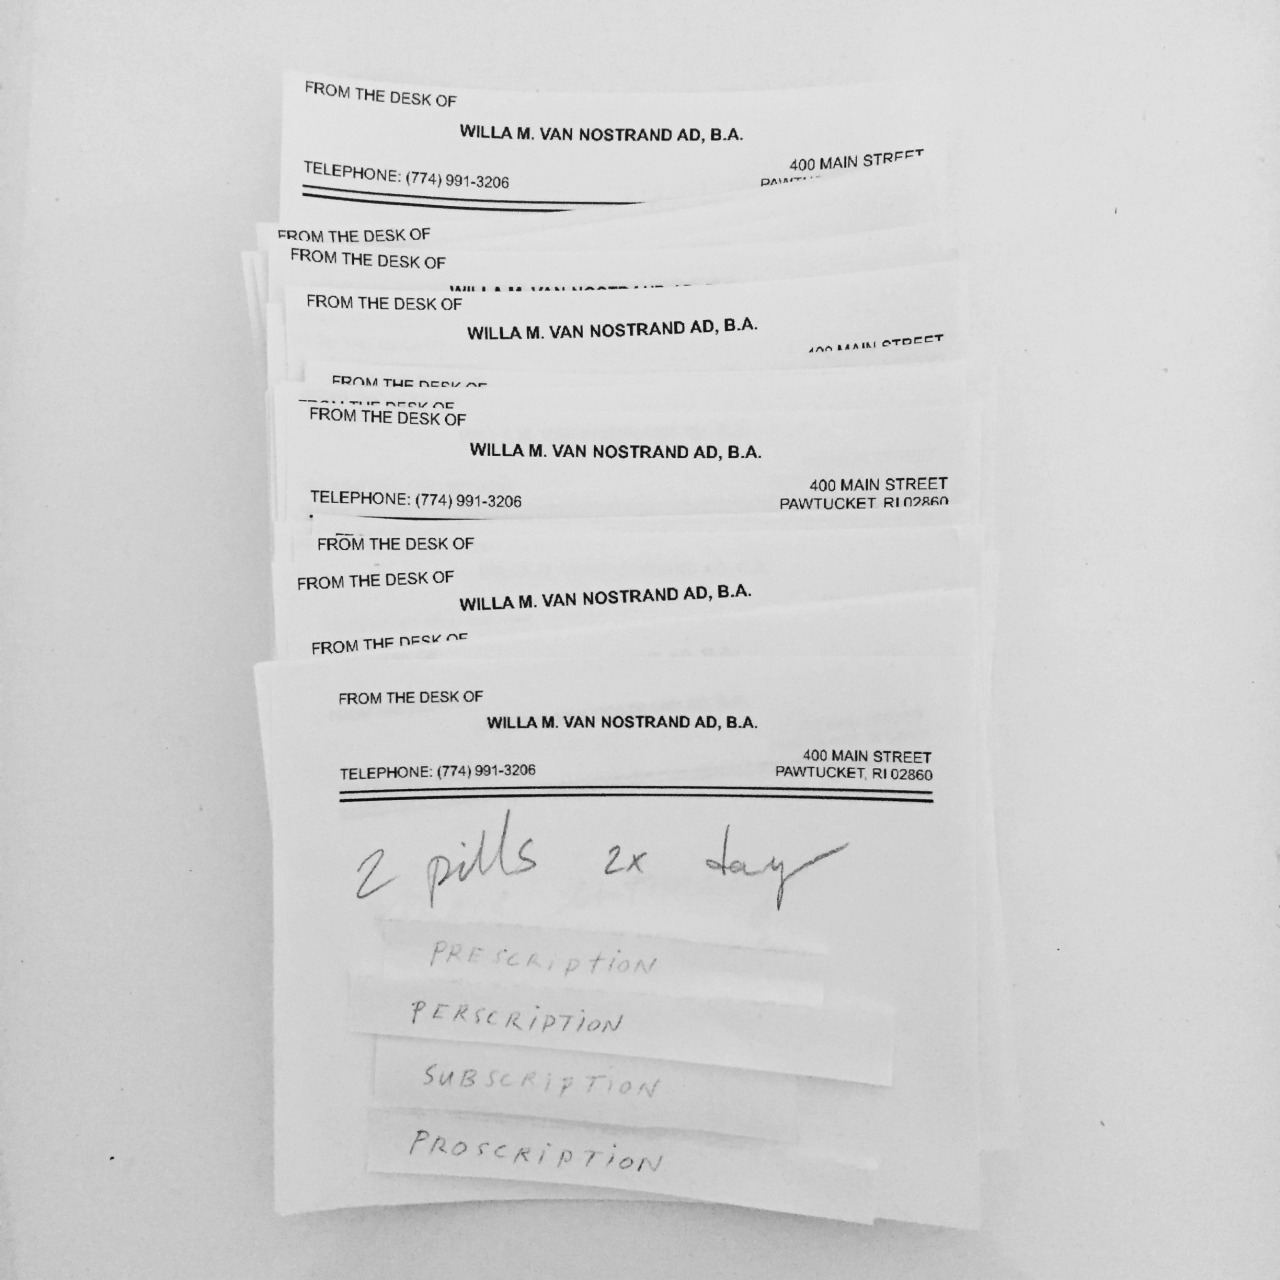 FROM THE DESK OF
WILLA M. VAN NOSTRAND AD, B.A.
400 MAIN STREET
TELEPHONE: (774) 991-3206
FROM THE DESK OF
FROM THE DESK OF
WILLA M. VAN NOSTRAND AD
FROM THE DESK OF
WILLA M. VAN NOSTRAND AD, B.A.
400 MAIN STREET
FROM THE DESK OF
FROM THE DESK OF
FROM THE DESK OF
WILLA M. VAN NOSTRAND AD, B.A.
400 MAIN STREET
TELEPHONE: (774) 991-3206
PAWTUCKET, RI 02860
FROM THE DESK OF
FROM THE DESK OF
WILLA M. VAN NOSTRAND AD, B.A.
FROM THE DESK OF
FROM THE DESK OF
WILLA M. VAN NOSTRAND AD, B.A.
400 MAIN STREET
TELEPHONE: (774) 991-3206
PAWTUCKET, RI 02860
2 pills 2x day
PRESCRIPTION
PERSCRIPTION
SUBSCRIPTION
PROSCRIPTION